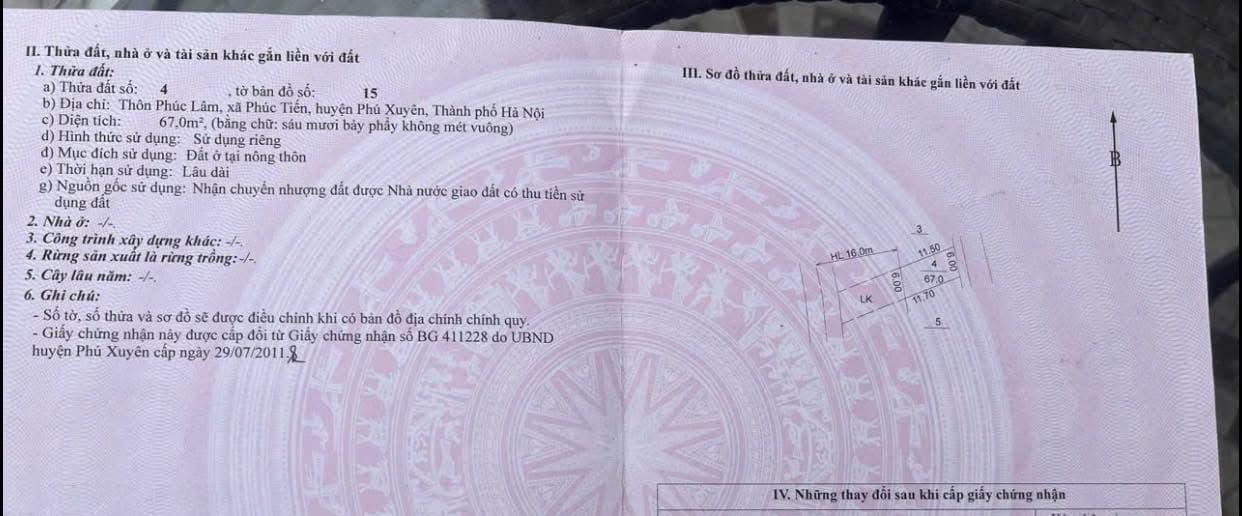 II. Thửa đất, nhà ở và tài sản khác gắn liền với đất
1. Thửa đất:
a) Thửa đất số: 4 , tờ bản đồ số: 15
b) Địa chỉ: Thôn Phúc Lâm, xã Phúc Tiến, huyện Phú Xuyên, Thành phố Hà Nội
c) Diện tích: 67,0m², (bằng chữ: sáu mươi bảy phẩy không mét vuông)
d) Hình thức sử dụng: Sử dụng riêng
đ) Mục đích sử dụng: Đất ở tại nông thôn
e) Thời hạn sử dụng: Lâu dài
g) Nguồn gốc sử dụng: Nhận chuyển nhượng đất được Nhà nước giao đất có thu tiền sử
dụng đất
2. Nhà ở: -/-.
3. Công trình xây dựng khác: -/-.
4. Rừng sản xuất là rừng trồng: -/-.
5. Cây lâu năm: -/-.
6. Ghi chú:
- Số tờ, số thửa và sơ đồ sẽ được điều chỉnh khi có bản đồ địa chính chính quy.
- Giấy chứng nhận này được cấp đổi từ Giấy chứng nhận số BG 411228 do UBND
huyện Phú Xuyên cấp ngày 29/07/2011.
III. Sơ đồ thửa đất, nhà ở và tài sản khác gắn liền với đất
B
3
HL 16.0m
11.50
4
67.0
6.00
6.00
LK
11.70
5
IV. Những thay đổi sau khi cấp giấy chứng nhận